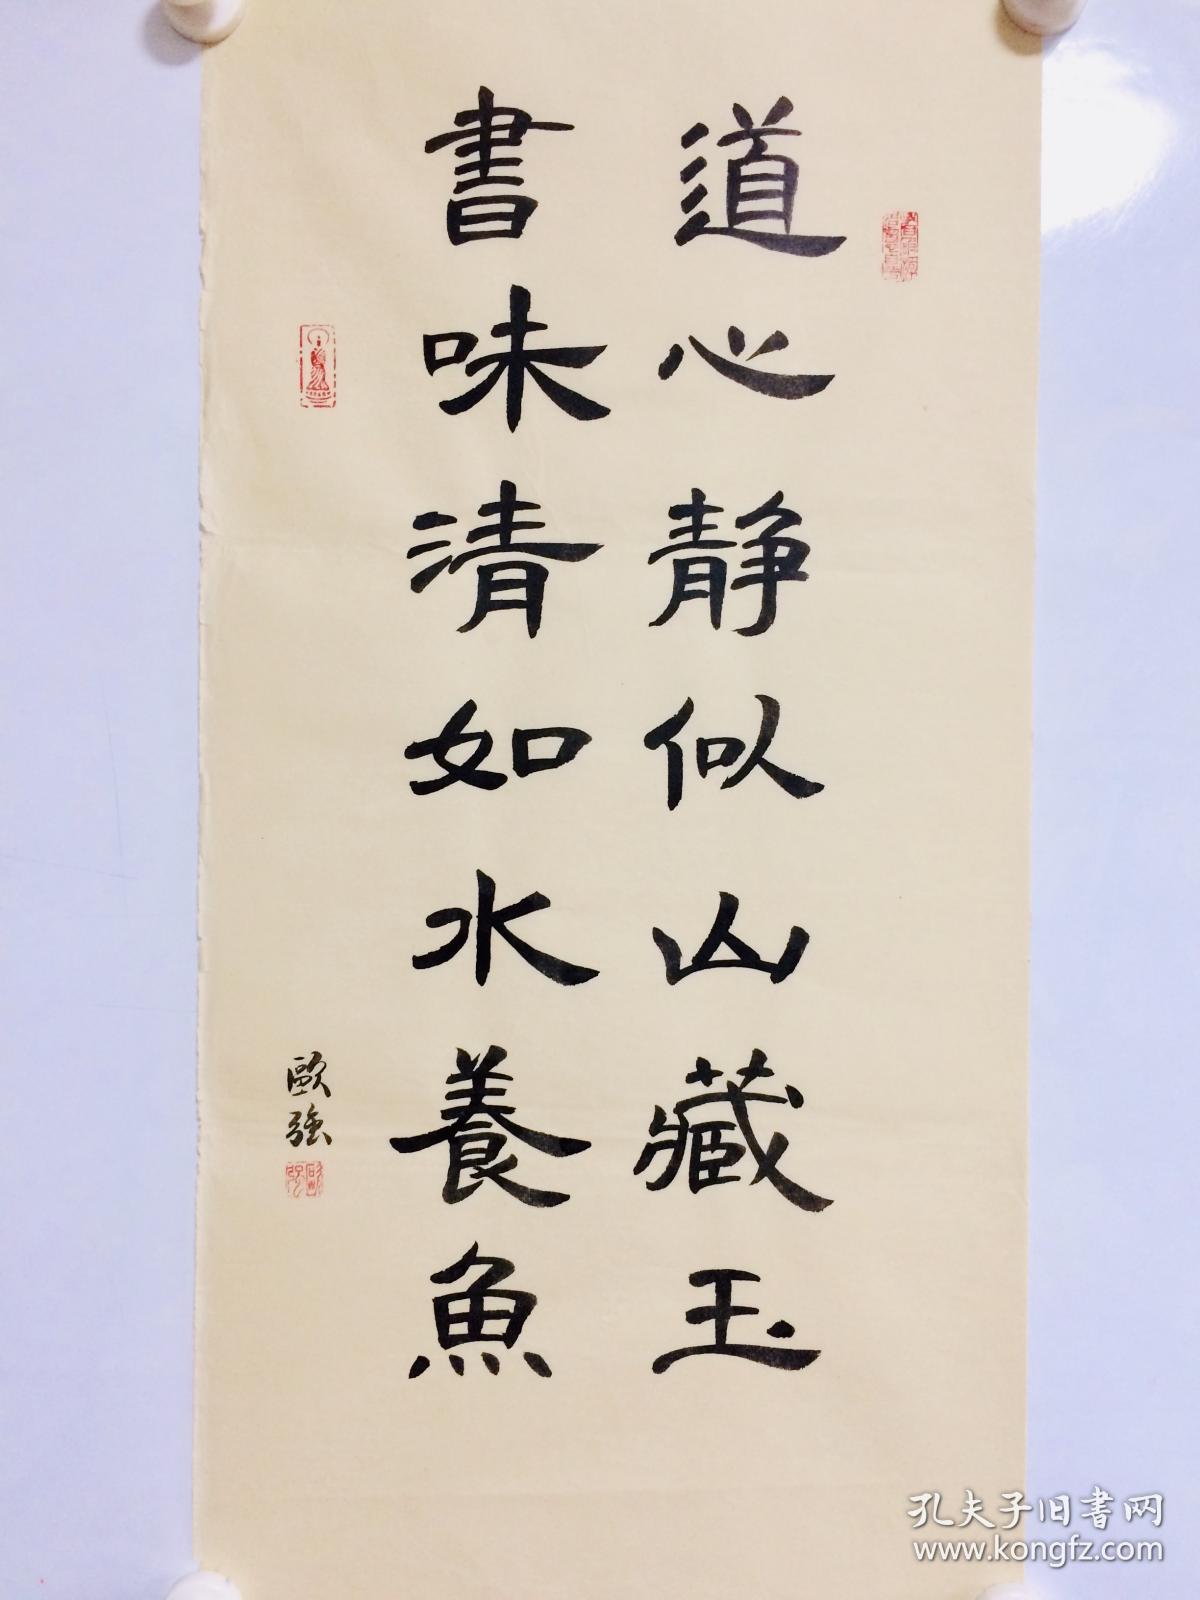 道心静似山藏玉
書味清如水養魚
歐强
孔夫子旧書网
www.kongfz.com